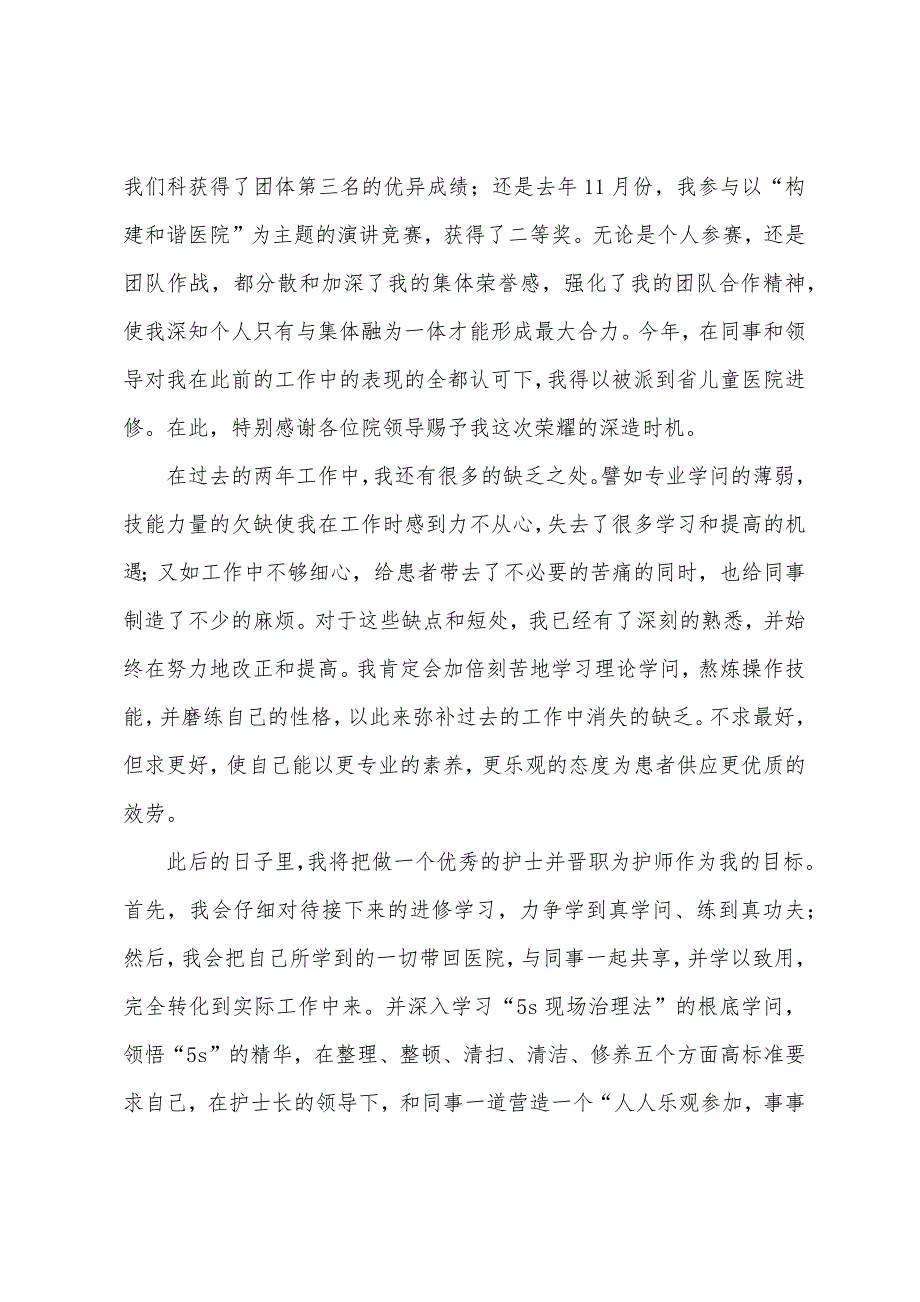 我们科获得了团体第三名的优异成绩；还是去年 11 月份，我参与以“构
建和谐医院”为主题的演讲竞赛，获得了二等奖。无论是个人参赛，还是
团队作战，都分散和加深了我的集体荣誉感，强化了我的团队合作精神，
使我深知个人只有与集体融为一体才能形成最大合力。今年，在同事和领
导对我在此前的工作中的表现的全都认可下，我得以被派到省儿童医院进
修。在此，特别感谢各位院领导赐予我这次荣耀的深造时机。
在过去的两年工作中，我还有很多的缺乏之处。譬如专业学问的薄弱，
技能力量的欠缺使我在工作时感到力不从心，失去了很多学习和提高的机
遇；又如工作中不够细心，给患者带去了不必要的苦痛的同时，也给同事
制造了不少的麻烦。对于这些缺点和短处，我已经有了深刻的熟悉，并始
终在努力地改正和提高。我肯定会加倍刻苦地学习理论学问，熬炼操作技
能，并磨练自己的性格，以此来弥补过去的工作中消失的缺乏。不求最好，
但求更好，使自己能以更专业的素养，更乐观的态度为患者供应更优质的
效劳。
此后的日子里，我将把做一个优秀的护士并晋职为护师作为我的目标。
首先，我会仔细对待接下来的进修学习，力争学到真学问、练到真功夫；
然后，我会把自己所学到的一切带回医院，与同事一起共享，并学以致用，
完全转化到实际工作中来。并深入学习“5s 现场治理法”的根底学问，
领悟“5s”的精华，在整理、整顿、清扫、清洁、修养五个方面高标准要
求自己，在护士长的领导下，和同事一道营造一个“人人乐观参加，事事